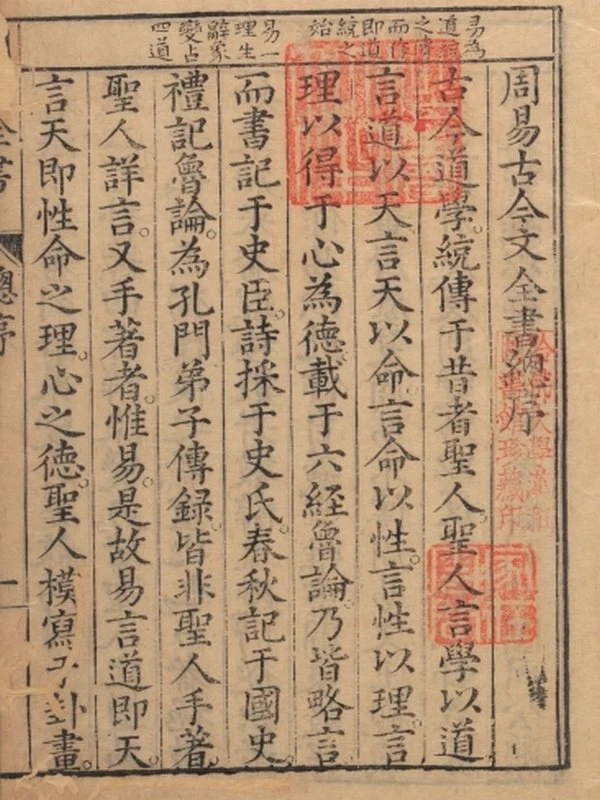 易為
道統
之
而作
即道
統之
始
易一
理生
辭象
變占
四道
周易古今文全書總序
古今道學。統傳于昔者聖人。聖人言學以道
言道以天言天以命。言命以性。言性以理言
理以得于心為德。載于六経魯論。乃皆略言
而書記于史臣。詩採于史氏。春秋記于國史。
禮記魯論。為孔門弟子傳録。皆非聖人手著。
聖人詳言。又手著者。惟易。是故易言道即天。
言天即性命之理。心之德。聖人模寫于卦畫。
全書
總序
一
珍藏印